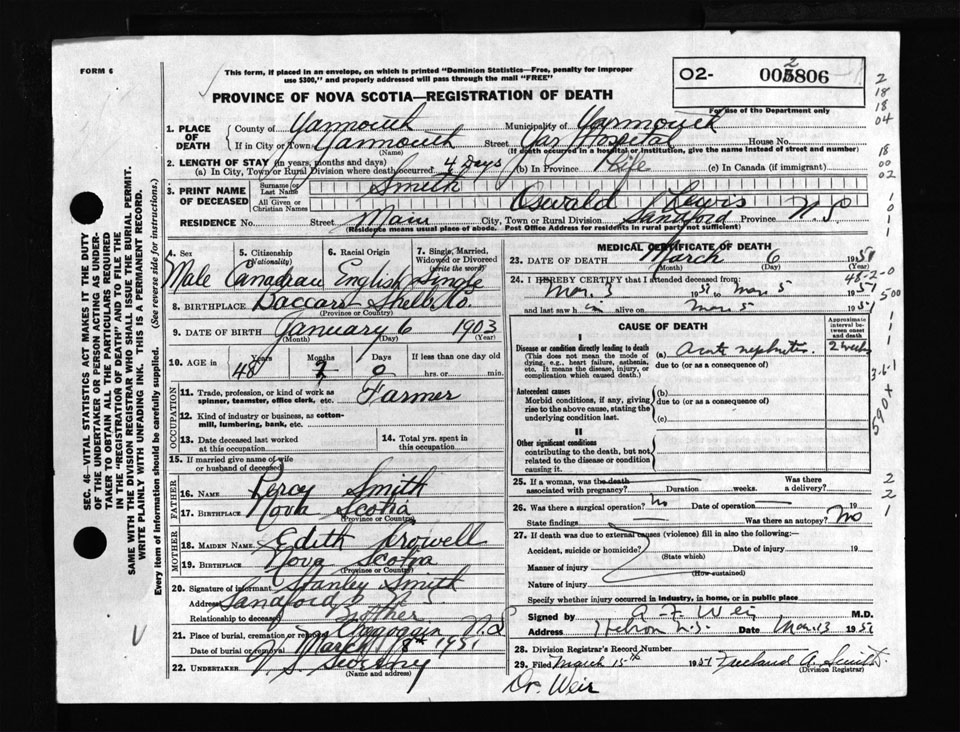 FORM 6
This form, if placed in an envelope, on which is printed "Dominion Statistics—Free, penalty for improper
use $300," and properly addressed will pass through the mail "FREE"
02- 005806
2
PROVINCE OF NOVA SCOTIA—REGISTRATION OF DEATH
For use of the Department only
1. PLACE OF DEATH
County of Yarmouth Municipality of Yarmouth
If in City or Town Yarmouth Street Yar Hospital House No.
(Name) (If death occurred in a hospital or institution, give the name instead of street and number)
2. LENGTH OF STAY (in years, months and days)
(a) In City, Town or Rural Division where death occurred. 4 Days (b) In Province Life (c) In Canada (if immigrant)
3. PRINT NAME OF DECEASED
Surname or Last Name Smith
All Given or Christian Names Oswald Lewis
RESIDENCE No. Street Main City, Town or Rural Division Sandford Province N.S.
(Residence means usual place of abode. Post Office Address for residents in rural parts not sufficient)
4. Sex 5. Citizenship (Nationality) 6. Racial Origin 7. Single, Married, Widowed or Divorced (write the word)
Male Canadian English Single
8. BIRTHPLACE Baccaro Shelb Co.
(Province or Country)
9. DATE OF BIRTH January 6 1903
(Month) (Day) (Year)
10. AGE in Years Months Days If less than one day old
48 2 0 hrs. or min.
OCCUPATION
11. Trade, profession, or kind of work as spinner, teamster, office clerk, etc. Farmer
12. Kind of industry or business, as cotton-mill, lumbering, bank, etc.
13. Date deceased last worked at this occupation
14. Total yrs. spent in this occupation
15. If married give name of wife or husband of deceased
FATHER
16. NAME Percy Smith
17. BIRTHPLACE Nova Scotia
(Province or Country)
MOTHER
18. MAIDEN NAME Edith Crowell
19. BIRTHPLACE Nova Scotia
(Province or Country)
20. Signature of informant Stanley Smith
Address Sandford N.S.
Relationship to deceased Brother
21. Place of burial, cremation or removal Chegoggin N.S
Date of burial or removal March 8th 1951
22. UNDERTAKER V S Sweeny
(Name and address)
MEDICAL CERTIFICATE OF DEATH
23. DATE OF DEATH March 6 1951
(Month) (Day) (Year)
24. I HEREBY CERTIFY that I attended deceased from:
Mar. 3 1951 to Mar 5 1951
and last saw him alive on Mar 5 1951
CAUSE OF DEATH
Approximate interval between onset and death
I
Disease or condition directly leading to death
(This does not mean the mode of dying, e.g., heart failure, asthenia, etc. It means the disease, injury, or complication which caused death.)
(a) acute nephritis. 2 weeks
due to (or as a consequence)
Antecedent causes
Morbid conditions, if any, giving rise to the above cause, stating the underlying condition last.
(b)
due to (or as a consequence)
(c)
II
Other significant conditions
contributing to the death, but not related to the disease or condition causing it.
25. If a woman, was the death associated with pregnancy? Duration weeks. Was there a delivery?
26. Was there a surgical operation? No Date of operation 19
State findings Was there an autopsy? No
27. If death was due to external causes (violence) fill in also the following:
Accident, suicide or homicide? Date of injury 19
(State which)
Manner of injury
(How sustained)
Nature of injury
Specify whether injury occurred in industry, in home, or in public place
Signed by A. F. Weir M.D.
Address Hebron N.S. Date Mar. 13 1951
28. Division Registrar's Record Number
29. Filed March 15th 1951 Freeland A. Smith
(Division Registrar)
Dr. Weir
2
18
18
04
18
00
02
1
0
1
1
48-2-0
500
1
1
1
3-1-1
590 x
2
2
1
SEC. 46—VITAL STATISTICS ACT MAKES IT THE DUTY
OF THE UNDERTAKER OR PERSON ACTING AS UNDER-
TAKER TO OBTAIN ALL THE PARTICULARS REQUIRED
IN THE "REGISTRATION OF DEATH" AND TO FILE THE
SAME WITH THE DIVISION REGISTRAR WHO SHALL ISSUE THE BURIAL PERMIT.
WRITE PLAINLY WITH UNFADING INK. THIS IS A PERMANENT RECORD.
Every item of information should be carefully supplied. (See reverse side for instructions.)